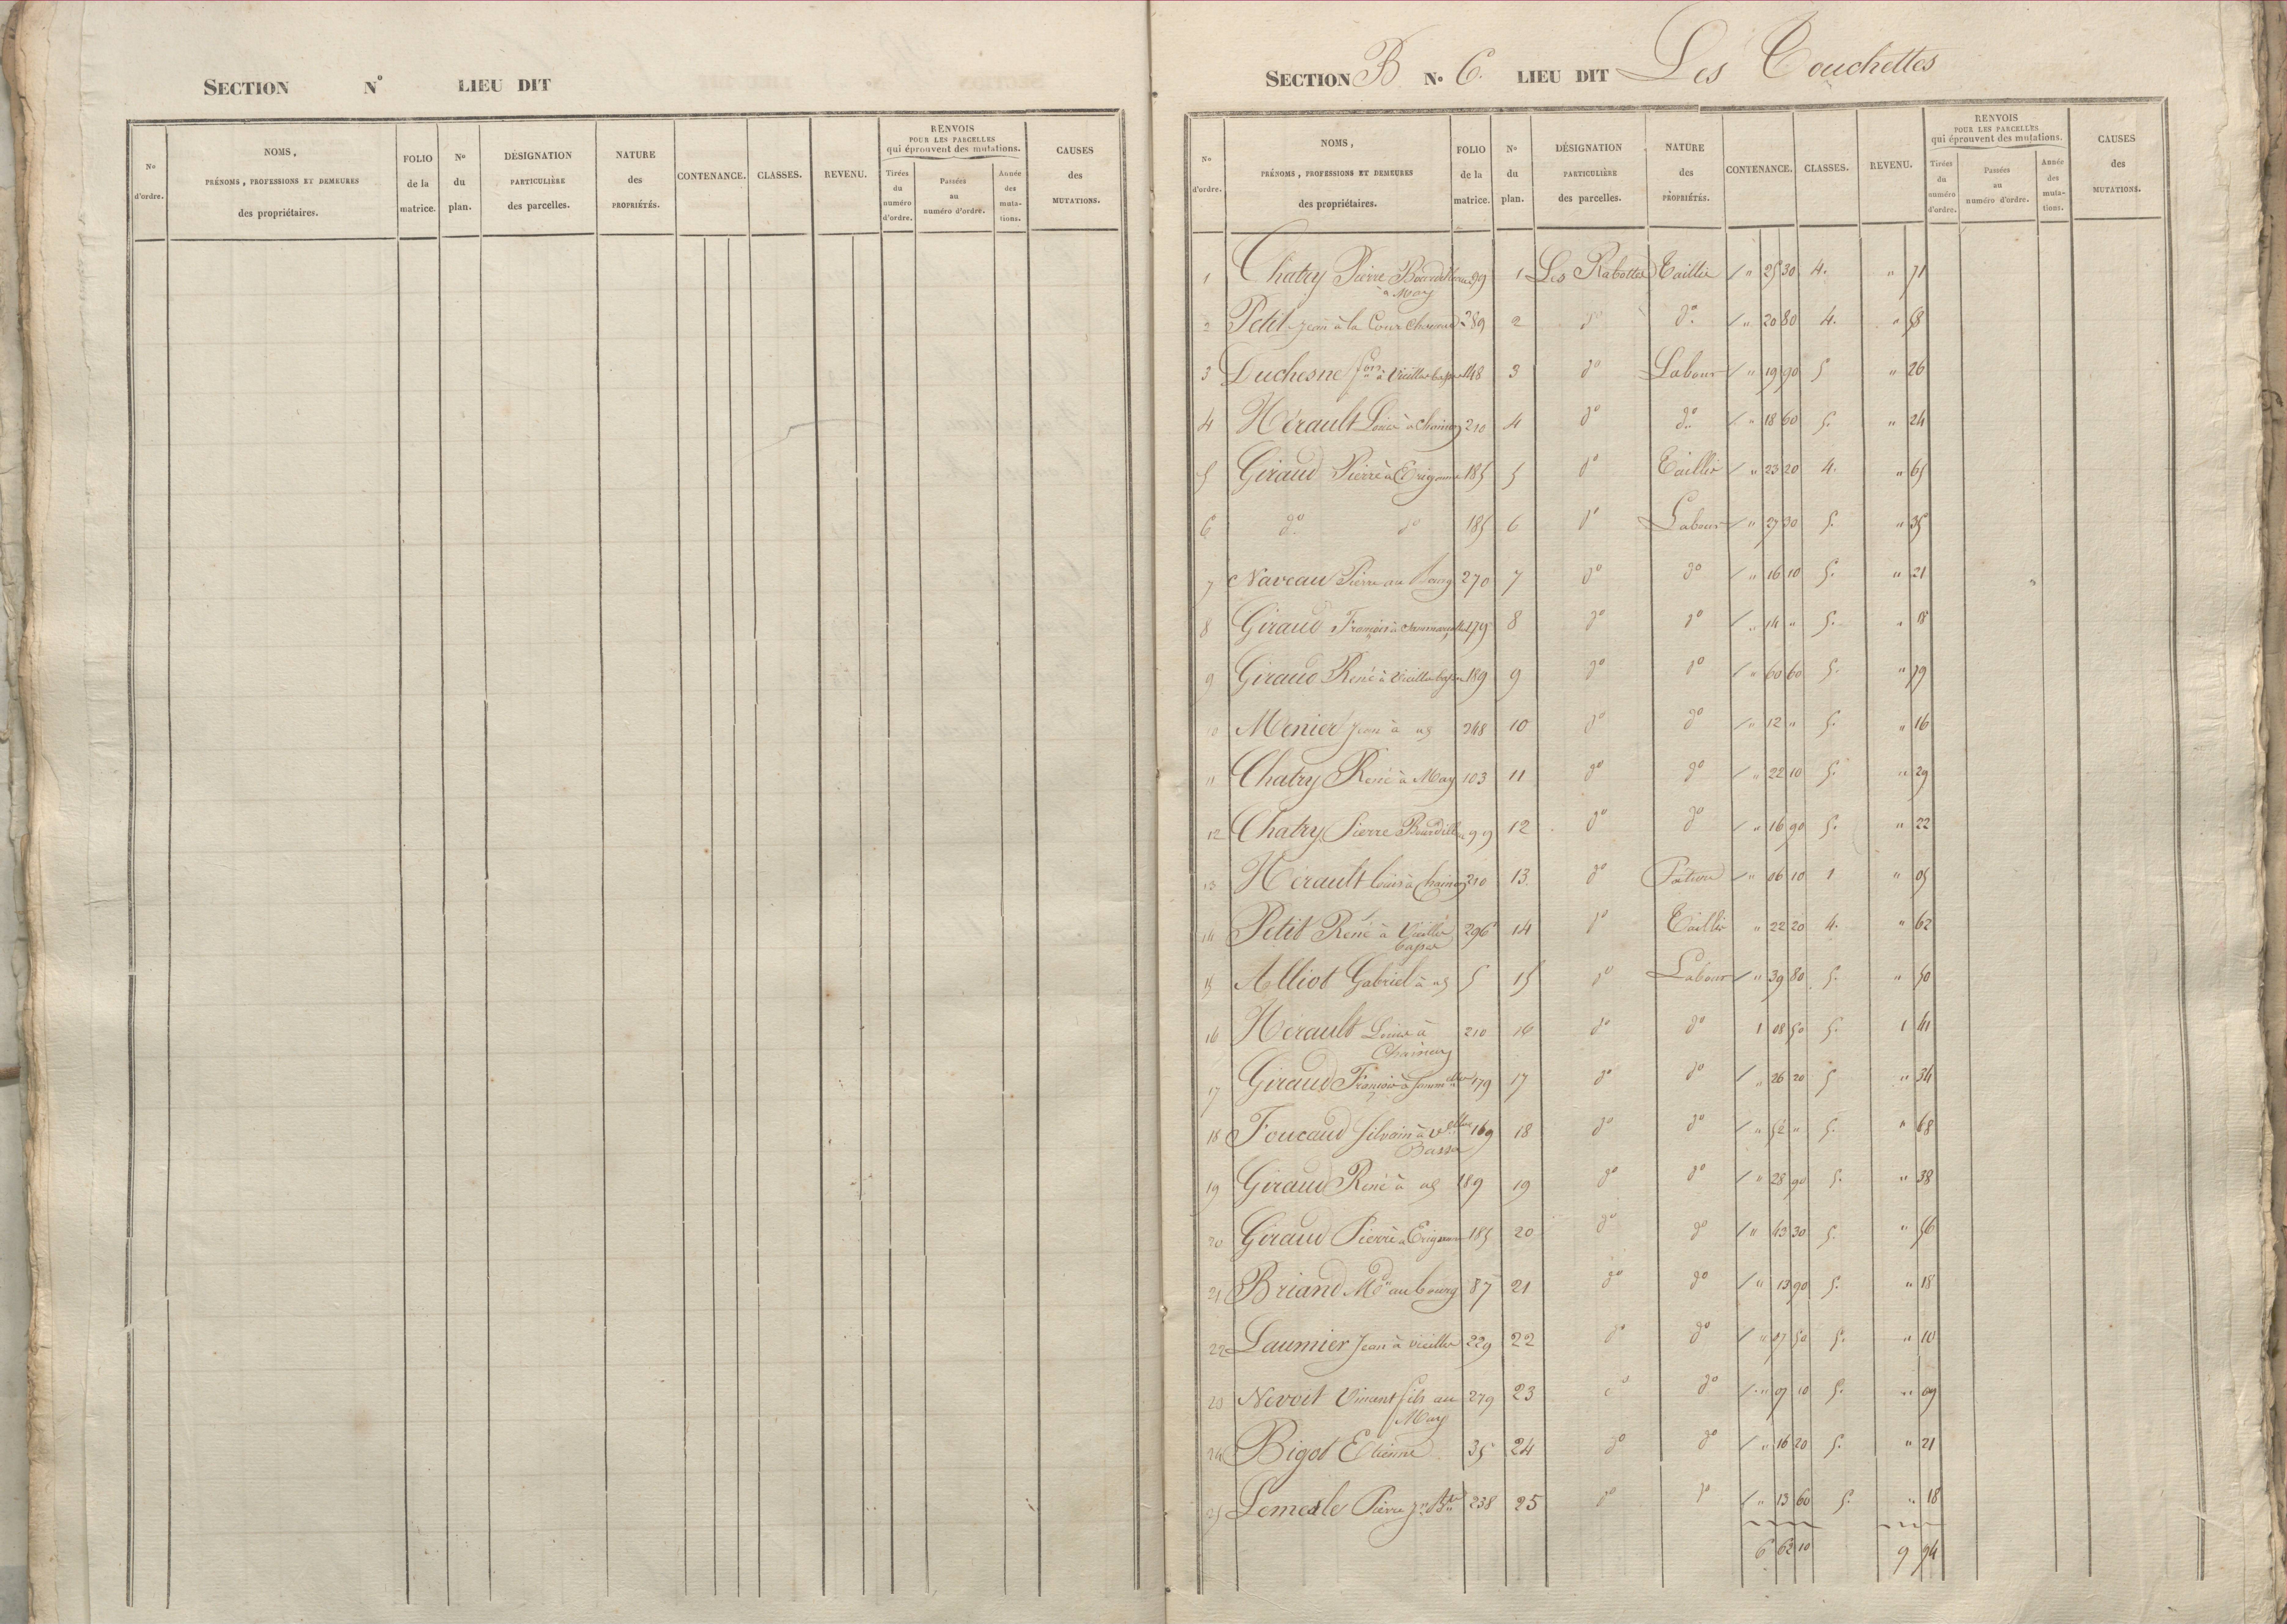 SECTION N° LIEU DIT
N° d'ordre. NOMS, PRÉNOMS, PROFESSIONS ET DEMEURES des propriétaires. FOLIO de la matrice. N° du plan. DÉSIGNATION PARTICULIÈRE des parcelles. NATURE des PROPRIÉTÉS. CONTENANCE. CLASSES. REVENU. RENVOIS POUR LES PARCELLES qui éprouvent des mutations. Tirées du numéro d'ordre. Passées au numéro d'ordre. Année des mutations. CAUSES des MUTATIONS.
SECTION B N° 6. LIEU DIT Les Touchettes
N° d'ordre. NOMS, PRÉNOMS, PROFESSIONS ET DEMEURES des propriétaires. FOLIO de la matrice. N° du plan. DÉSIGNATION PARTICULIÈRE des parcelles. NATURE des PROPRIÉTÉS. CONTENANCE. CLASSES. REVENU. RENVOIS POUR LES PARCELLES qui éprouvent des mutations. Tirées du numéro d'ordre. Passées au numéro d'ordre. Année des mutations. CAUSES des MUTATIONS.
1 Chatry Pierre 99 1 Les Rabottes Taillis " 25 30 4. " 71
à May
2 Petit Jean à la Cour 289 2 d° d° " 20 80 4. " 58
3 Duchesne à Vieille 148 3 d° Labour " 19 90 5 " 26
4 Hérault Louis à Chaincy 210 4 d° d° " 18 60 5. " 24
5 Giraud Pierre à Erigonne 185 5 d° Taillis " 23 20 4. " 65
6 d° d° 185 6 d° Labour " 27 30 5. " 35
7 Naveau Pierre au bourg 270 7 d° d° " 16 10 5. " 21
8 Giraud François à 179 8 d° d° " 14 " 5. " 18
9 Giraud René à Vieille 189 9 d° d° " 60 60 5. " 79
10 Menier Jean à 248 10 d° d° " 12 " 5. " 16
11 Chatry René à May 103 11 d° d° " 22 10 5. " 29
12 Chatry Pierre 99 12 d° d° " 16 90 5. " 22
13 Hérault Louis à Chaincy 210 13. d° " 06 10 1 " 05
14 Petit René à Vieille 296 14 d° Taillis " 22 20 4. " 62
15 Alliot Gabriel à 5 15 d° Labour " 39 80 5. " 50
16 Hérault Louis à 210 16 d° d° 1 08 50 5. 1 41
Chaincy
17 Giraud François à 179 17 d° d° " 26 20 5 " 34
18 Foucaud Silvain à 169 18 d° d° " 52 " 5. " 68
Basse
19 Giraud René à 189 19 d° d° " 28 90 5. " 38
20 Giraud Pierre à Erigonne 185 20 d° d° " 43 30 5. " 56
21 Briand au bourg 87 21 d° d° " 13 90 5. " 18
22 Laumier Jean à Vieille 229 22 d° d° " 07 50 5. " 10
23 Nevoit Vincent fils au 279 23 d° d° " 07 10 5. " 09
May
24 Bigot Etienne 35 24 d° d° " 16 20 5. " 21
25 Lemesle Pierre 238 25 d° d° " 13 60 5. " 18
6 62 10 9 94